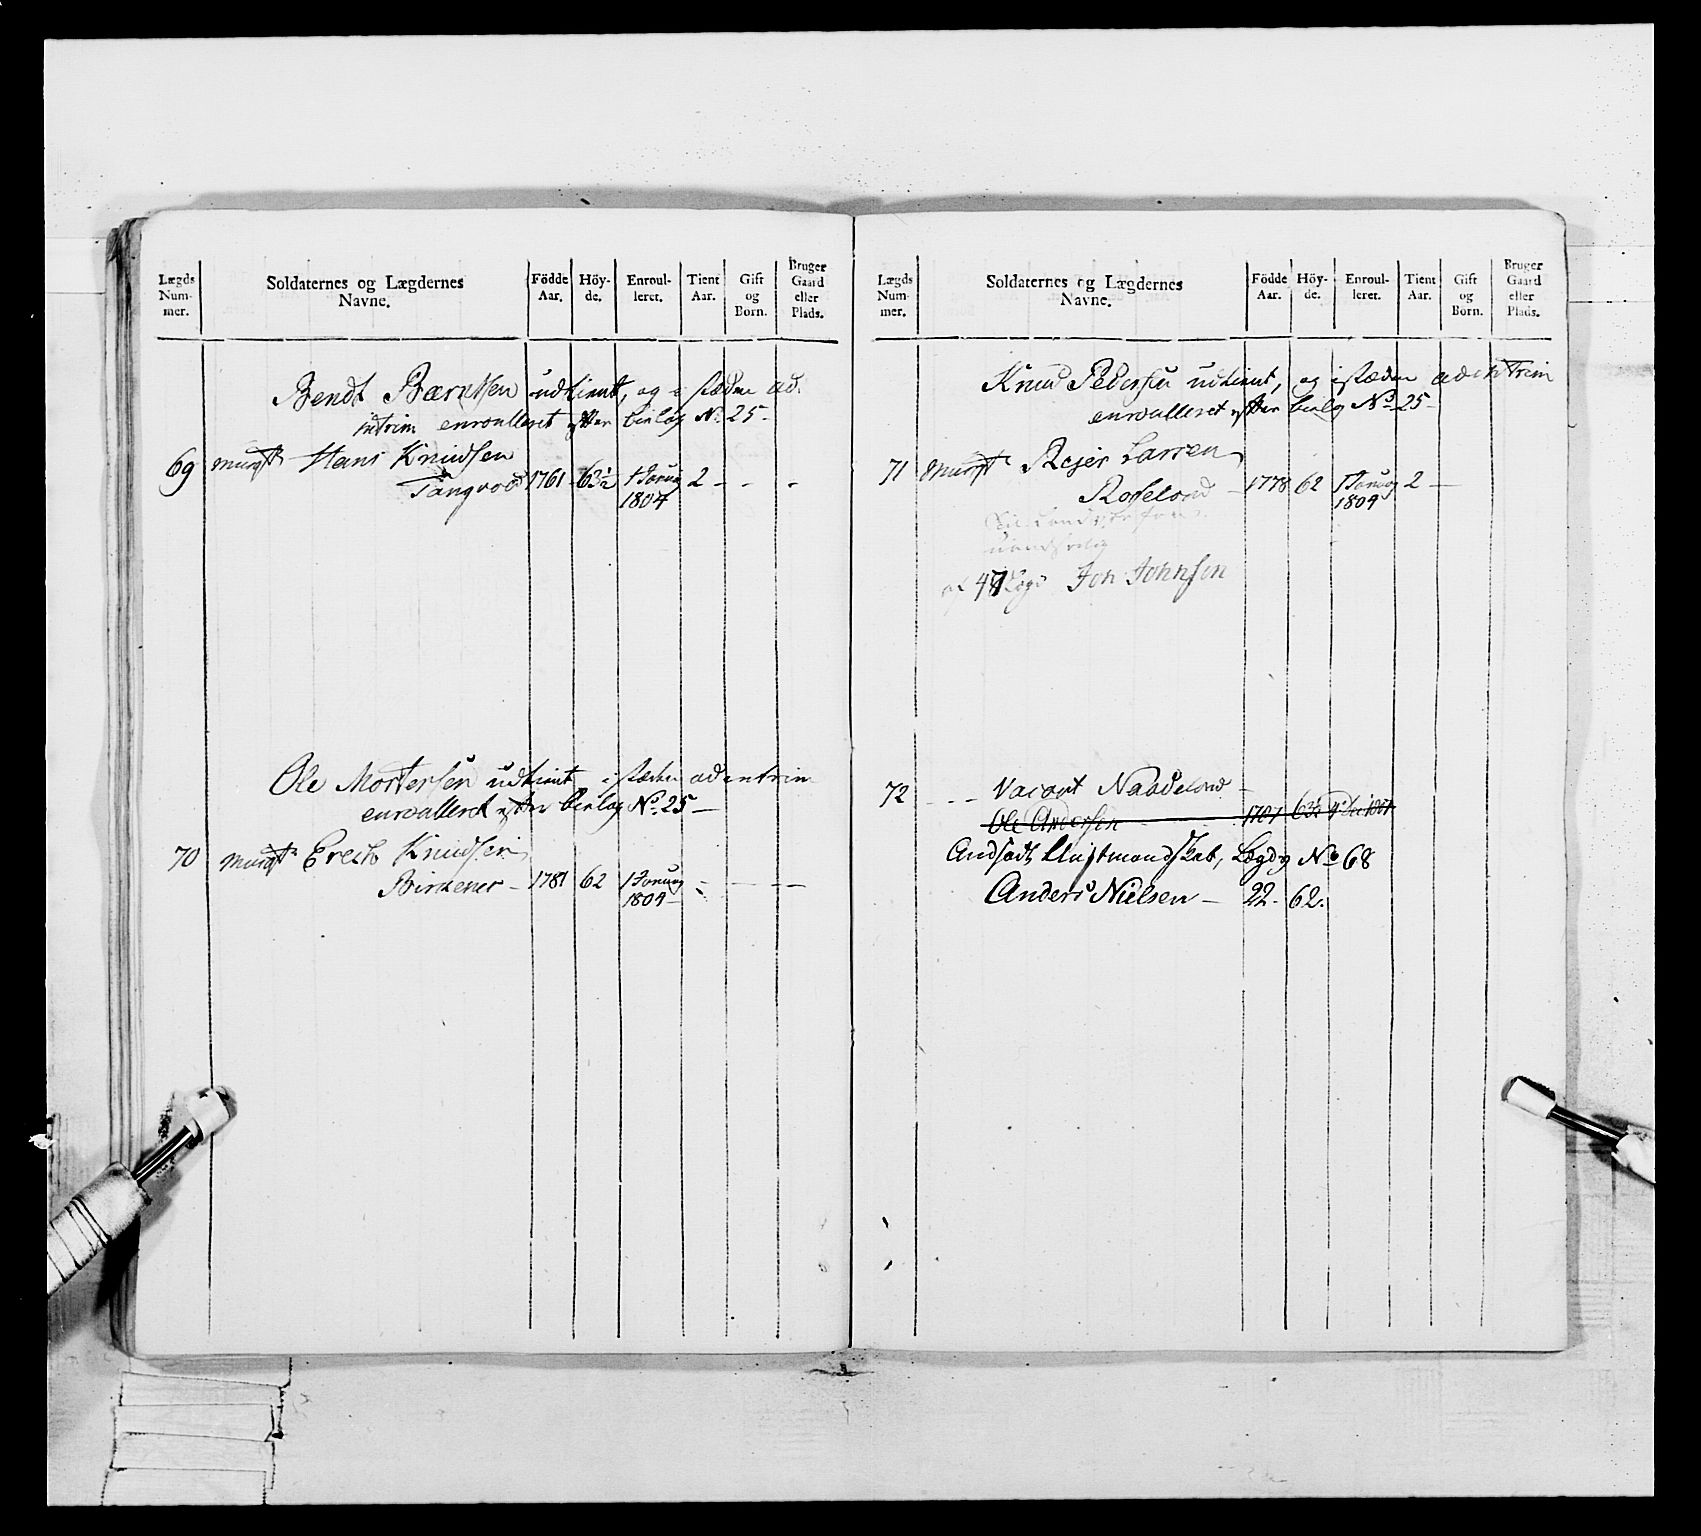 Lægds Num- mer.
Soldaternes og Lægdernes Navne.
Födde Aar.
Höy- de.
Enroul- leret.
Tient Aar.
Gift og Born.
Bruger Gaard eller Plads.
Bendt Berntsen udtient, og i stæden ad.
intrim enroulleret efter bielag No. 25-
69 Hans Knudsen
Tangvod 1761 63½ 1 Januar 2 - - -
1804
Ole Mortensen udtient i stæden ad entrim
enroulleret efter bielag No. 25 -
70 Erech Knudsen
Birkener - 1781 62 1 Januar - - -
1804 -
Lægds Num- mer.
Soldaternes og Lægdernes Navne.
Födde Aar.
Höy- de.
Enroul- leret.
Tient Aar.
Gift og Born.
Bruger Gaard eller Plads.
Knud Pedersen udtient, og i stæden ad intrim
enroulleret efter bielag No. 25-
71 Rejer Larsen
Roseland - 1778 62 1 Januar 2 -
1804
af 47 Lægd Jon Johnsen
72 - - - Vacant Naadeland -
Ole Andersen 1787 63½
Lægds No 68
Anders Nielsen - 22. 62.